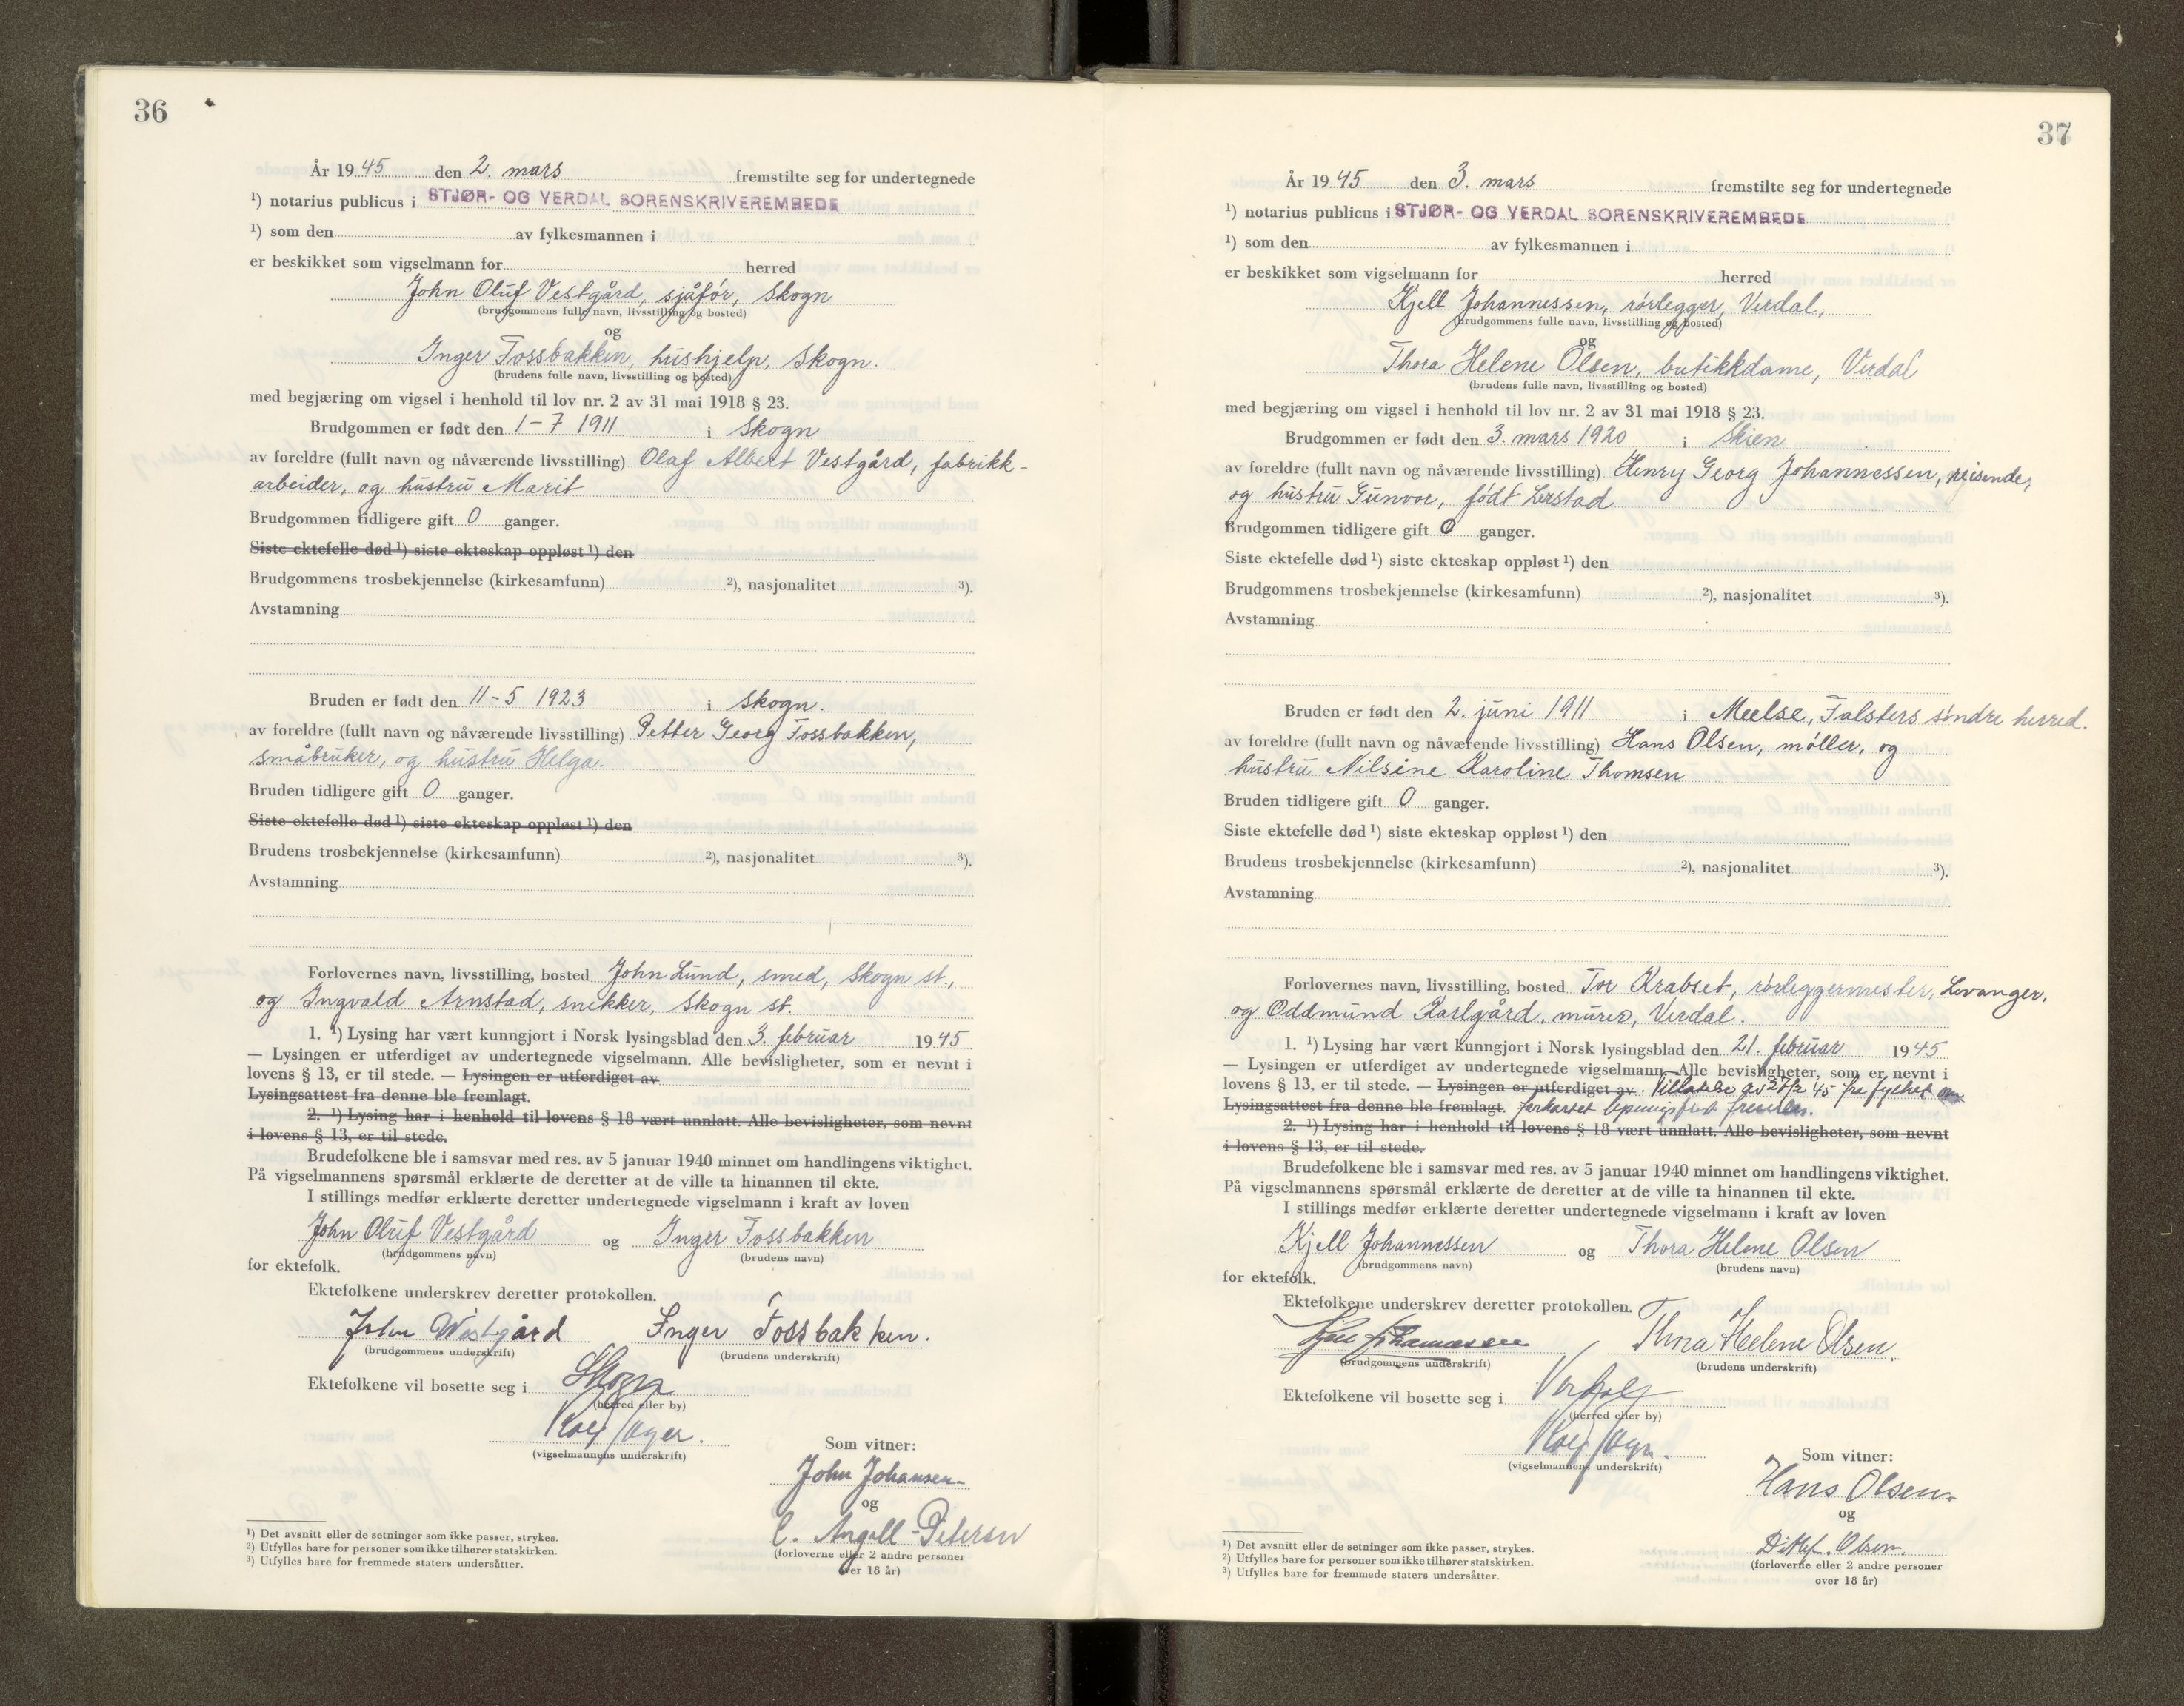 36
År 1945 den 2. mars fremstilte seg for undertegnede
¹) notarius publicus i STJØR- OG VERDAL SORENSKRIVEREMBEDE
¹) som den av fylkesmannen i
er beskikket som vigselmann for herred
John Oluf Vestgård, sjåfór, Skogn
(brudgommens fulle navn, livsstilling og bosted)
og
Inger Fossbakken, hushjelp, Skogn.
(brudens fulle navn, livsstilling og bosted)
med begjæring om vigsel i henhold til lov nr. 2 av 31 mai 1918 § 23.
Brudgommen er født den 1-7 1911 i Skogn
av foreldre (fullt navn og nåværende livsstilling) Olaf Albert Vestgård, fabrikk-
arbeider, og hustru Marit
Brudgommen tidligere gift 0 ganger.
Siste ektefelle død ¹) siste ekteskap oppløst ¹) den
Brudgommens trosbekjennelse (kirkesamfunn) ²), nasjonalitet ³).
Avstamning
Bruden er født den 11-5 1923 i Skogn.
av foreldre (fullt navn og nåværende livsstilling) Petter Georg Fossbakken,
småbruker, og hustru Helga.
Bruden tidligere gift 0 ganger.
Siste ektefelle død ¹) siste ekteskap oppløst ¹) den
Brudens trosbekjennelse (kirkesamfunn) ²), nasjonalitet ³).
Avstamning
Forlovernes navn, livsstilling, bosted John Lund, smed, Skogn st.,
og Ingvald Arnstad, snekker, Skogn st.
1. ¹) Lysing har vært kunngjort i Norsk lysingsblad den 3. februar 1945
— Lysingen er utferdiget av undertegnede vigselmann. Alle bevisligheter, som er nevnt i
lovens § 13, er til stede. — Lysingen er utferdiget av
Lysingsattest fra denne ble fremlagt.
2. ¹) Lysing har i henhold til lovens § 18 vært unnlatt. Alle bevisligheter, som nevnt
i lovens § 13, er til stede.
Brudefolkene ble i samsvar med res. av 5 januar 1940 minnet om handlingens viktighet.
På vigselmannens spørsmål erklærte de deretter at de ville ta hinannen til ekte.
I stillings medfør erklærte deretter undertegnede vigselmann i kraft av loven
John Oluf Vestgård og Inger Fossbakken
(brudgommens navn) (brudens navn)
for ektefolk.
Ektefolkene underskrev deretter protokollen.
John Westgård Inger Fossbakken.
(brudgommens underskrift) (brudens underskrift)
Ektefolkene vil bosette seg i Skogn
(herred eller by)
(vigselmannens underskrift)
Som vitner:
John Johansen
og
C. Angell-Petersen
(forloverne eller 2 andre personer
over 18 år)
¹) Det avsnitt eller de setninger som ikke passer, strykes.
²) Utfylles bare for personer som ikke tilhører statskirken.
³) Utfylles bare for fremmede staters undersåtter.
37
År 1945 den 3. mars fremstilte seg for undertegnede
¹) notarius publicus i STJØR- OG VERDAL SORENSKRIVEREMBEDE
¹) som den av fylkesmannen i
er beskikket som vigselmann for herred
Kjell Johannessen, rórlegger, Verdal,
(brudgommens fulle navn, livsstilling og bosted)
og
Thora Helene Olsen, butikkdame, Verdal
(brudens fulle navn, livsstilling og bosted)
med begjæring om vigsel i henhold til lov nr. 2 av 31 mai 1918 § 23.
Brudgommen er født den 3. mars 1920 i Skien
av foreldre (fullt navn og nåværende livsstilling) Henry Georg Johannessen, reisende,
og hustru Gunvor, fódt
Brudgommen tidligere gift 0 ganger.
Siste ektefelle død ¹) siste ekteskap oppløst ¹) den
Brudgommens trosbekjennelse (kirkesamfunn) ²), nasjonalitet ³).
Avstamning
Bruden er født den 2. juni 1911 i Meelse, Falsters sóndre herred.
av foreldre (fullt navn og nåværende livsstilling) Hans Olsen, móller, og
hustru Nilsine Karoline Thomsen
Bruden tidligere gift 0 ganger.
Siste ektefelle død ¹) siste ekteskap oppløst ¹) den
Brudens trosbekjennelse (kirkesamfunn) ²), nasjonalitet ³).
Avstamning
Forlovernes navn, livsstilling, bosted Tor Krabset, rórleggermester, Levanger,
og Oddmund Karlgård, murer, Verdal.
1. ¹) Lysing har vært kunngjort i Norsk lysingsblad den 21. februar 1945
— Lysingen er utferdiget av undertegnede vigselmann. Alle bevisligheter, som er nevnt i
lovens § 13, er til stede. — Lysingen er utferdiget av. Tillatelse av 27/2 45 fra fylket om
Lysingsattest fra denne ble fremlagt. forkortet lysningsfrist
2. ¹) Lysing har i henhold til lovens § 18 vært unnlatt. Alle bevisligheter, som nevnt
i lovens § 13, er til stede.
Brudefolkene ble i samsvar med res. av 5 januar 1940 minnet om handlingens viktighet.
På vigselmannens spørsmål erklærte de deretter at de ville ta hinannen til ekte.
I stillings medfør erklærte deretter undertegnede vigselmann i kraft av loven
Kjell Johannessen og Thora Helene Olsen
(brudgommens navn) (brudens navn)
for ektefolk.
Ektefolkene underskrev deretter protokollen.
Kjell Johannessen Thora Helene Olsen.
(brudgommens underskrift) (brudens underskrift)
Ektefolkene vil bosette seg i Verdal
(herred eller by)
(vigselmannens underskrift)
Som vitner:
Hans Olsen
og
Ditlef. Olsen.
(forloverne eller 2 andre personer
over 18 år)
¹) Det avsnitt eller de setninger som ikke passer, strykes.
²) Utfylles bare for personer som ikke tilhører statskirken.
³) Utfylles bare for fremmede staters undersåtter.